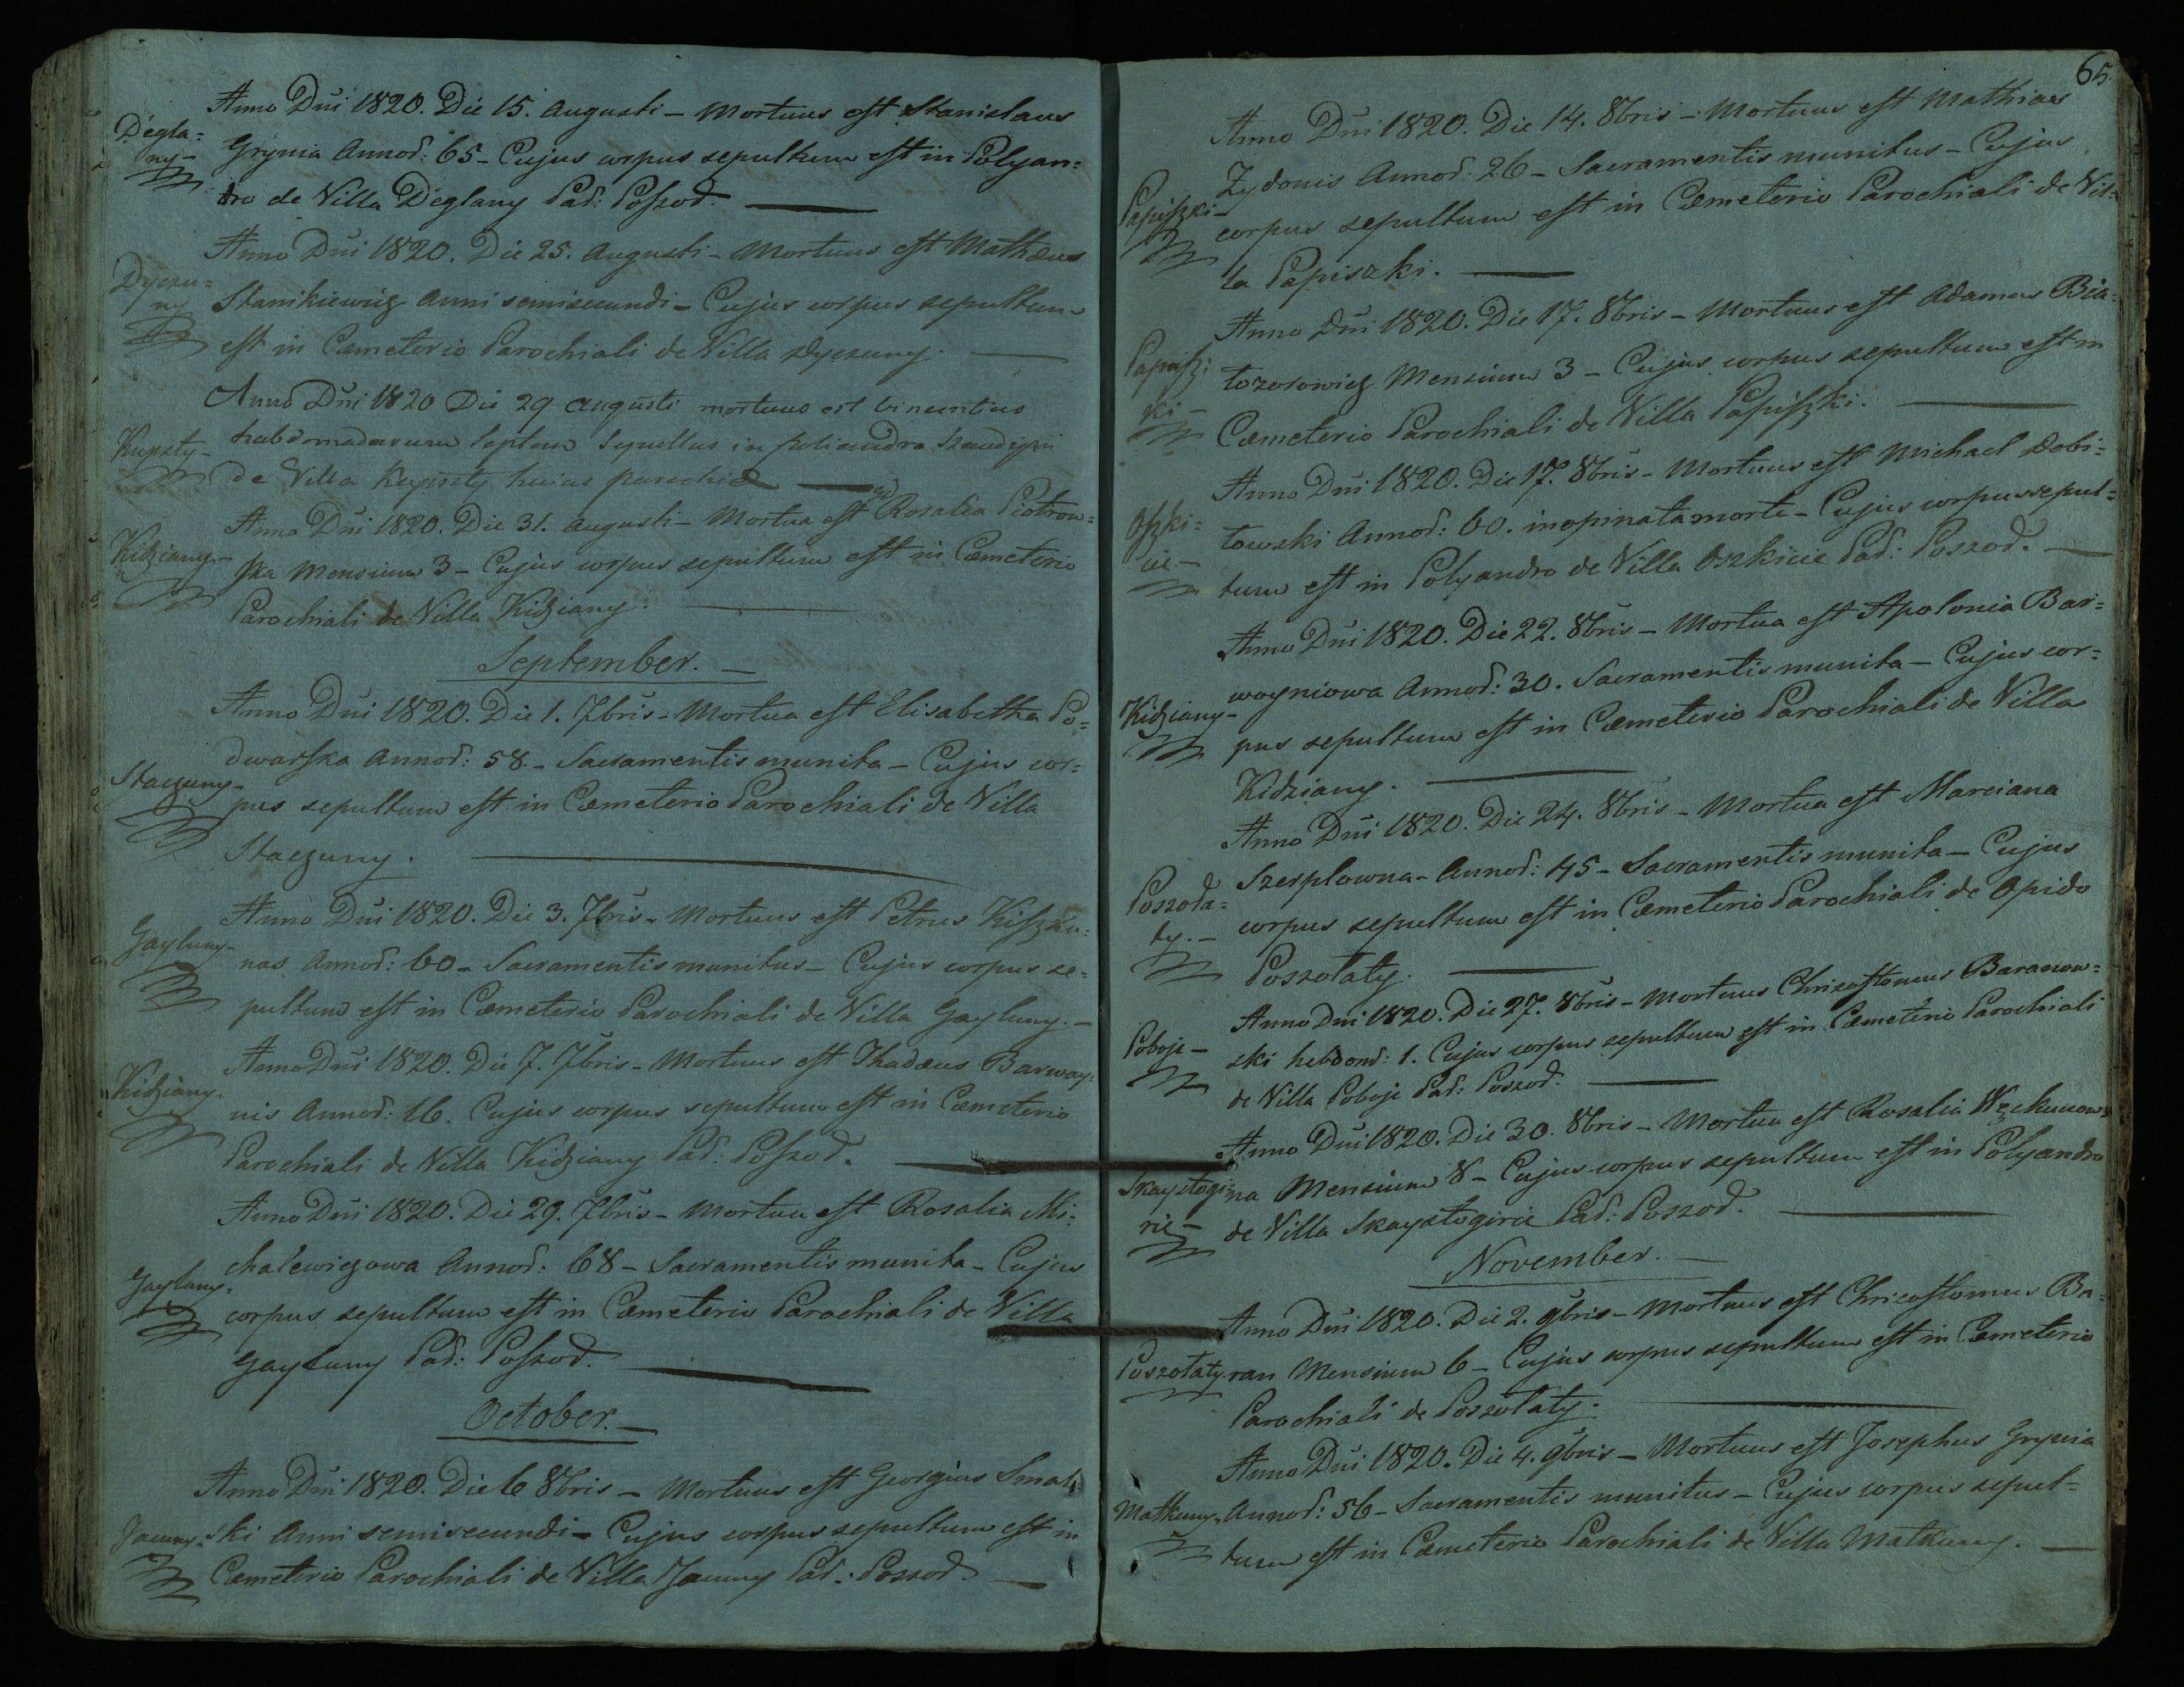 Anno Dñi 1820. Die 15. Augusti – Mortuus est Stanislaus
Degla=
ny –
Grynia Annoȓ: 65 – Cujus corpus sepultum est in Polyan=
dro de Villa Deglany Paȓ: Poszoȓ.
Anno Dñi 1820. Die 25. Augusti – Mortuus est Mathæus
Dyczu=
ny
Stanikiewicz Anni semisecundi – Cujus corpus sepultum
est in Cæmeterio Parochiali de Villa Dyczuny.
Anno Dñi 1820 Die 29 Augusti mortuus est Vincentius
Kupszty –
hebdomadarum Septem Sepultus in poliandro
de Villa Kupszty huius parochiæ
Anno Dñi 1820. Die 31. Augusti – Mortua est Rosalia Piotrow=
Kidziany –
ska Mensium 3 – Cujus corpus sepultum est in Cæmeterio
Parochiali de Villa Kidziany.
September. –
Anno Dñi 1820. Die 1. 7bris – Mortua est Elisabetha Po=
dwarska Annoȓ: 58 – Sacramentis munita – Cujus cor=
Staczuny –
pus sepultum est in Cæmeterio Parochiali de Villa
Staczuny.
Anno Dñi 1820. Die 3. 7bris – Mortuus est Petrus Kiszku=
Gayluny –
nas Annoȓ: 60 – Sacramentis munitus – Cujus corpus se=
pultum est in Cæmeterio Parochiali de Villa Gayluny. –
Anno Dñi 1820. Die 7. 7bris – Mortuus est Thadæus Barway=
Kidziany.
nis Annoȓ: 16. Cujus corpus sepultum est in Cæmeterio
Parochiali de Villa Kidziany Paȓ: Poszoȓ.
Anno Dñi 1820. Die 29. 7bris – Mortua est Rosalia Mi=
chalewiczowa Annoȓ: 68 – Sacramentis munita – Cujus
Gayluny.
corpus sepultum est in Cæmeterio Parochiali de Villa
Gayluny Paȓ: Poszoȓ.
October. –
Anno Dñi 1820. Die 6 8bris – Mortuus est Georgius
Jauny.
ski Anni semisecundi – Cujus corpus sepultum est in
Cæmeterio Parochiali de Villa Jauny Paȓ: Poszoȓ. –
65.
Anno Dñi 1820. Die 14. 8bris – Mortuus est Mathias
Zydonis Annoȓ: 26 – Sacramentis munitus – Cujus
Papiszki –
corpus sepultum est in Cæmeterio Parochiali de Vil=
la Papiszki.
Anno Dñi 1820. Die 17. 8bris – Mortuus est Adamus Bia=
Papisz=
ki –
łozorowicz Mensium 3 – Cujus corpus sepultum est in
Cæmeterio Parochiali de Villa Papiszki.
Anno Dñi 1820. Die 17. 8bris – Mortuus est Michael Dobi=
Oszki=
cie –
towski Annoȓ: 60. inopinata morte – Cujus corpus sepul=
tum est in Polyandro de Villa Oszkicie Paȓ: Poszoȓ. –
Anno Dñi 1820. Die 22. 8bris – Mortua est Apolonia Bar=
woyniowa Annoȓ: 30. Sacramentis munita – Cujus cor=
Kidziany –
pus sepultum est in Cæmeterio Parochiali de Villa
Kidziany.
Anno Dñi 1820. Die 24. 8bris – Mortua est Marciana
Szerplowna – Annoȓ: 45 – Sacramentis munita – Cujus
Poszoła=
ty. –
corpus sepultum est in Cæmeterio Parochiali de Opido
Poszołaty.
Anno Dñi 1820. Die 27. 8bris – Mortuus Chrizostomus Baranow=
Poboje –
ski hebdomȓ: 1. Cujus corpus sepultum est in Cæmeterio Parochiali
de Villa Poboje Paȓ: Poszoȓ.
Anno Dñi 1820. Die 30. 8bris – Mortua est Rosalia
Skaystogi=
rie –
na Mensium 8 – Cujus corpus sepultum est in Polyandro
de Villa Skaystogirie Paȓ: Poszoȓ.
November. –
Anno Dñi 1820. Die 2. 9bris – Mortuus est Chricostomus Ba=
Poszołaty.
ran Mensium 6 – Cujus corpus sepultum est in Cæmeterio
Parochiali de Poszołaty.
Anno Dñi 1820. Die 4. 9bris – Mortuus est Josephus Grynia
Matkuny.
Annoȓ: 56 – Sacramentis munitus – Cujus corpus sepul=
tum est in Cæmeterio Parochiali de Villa Matkuny. –